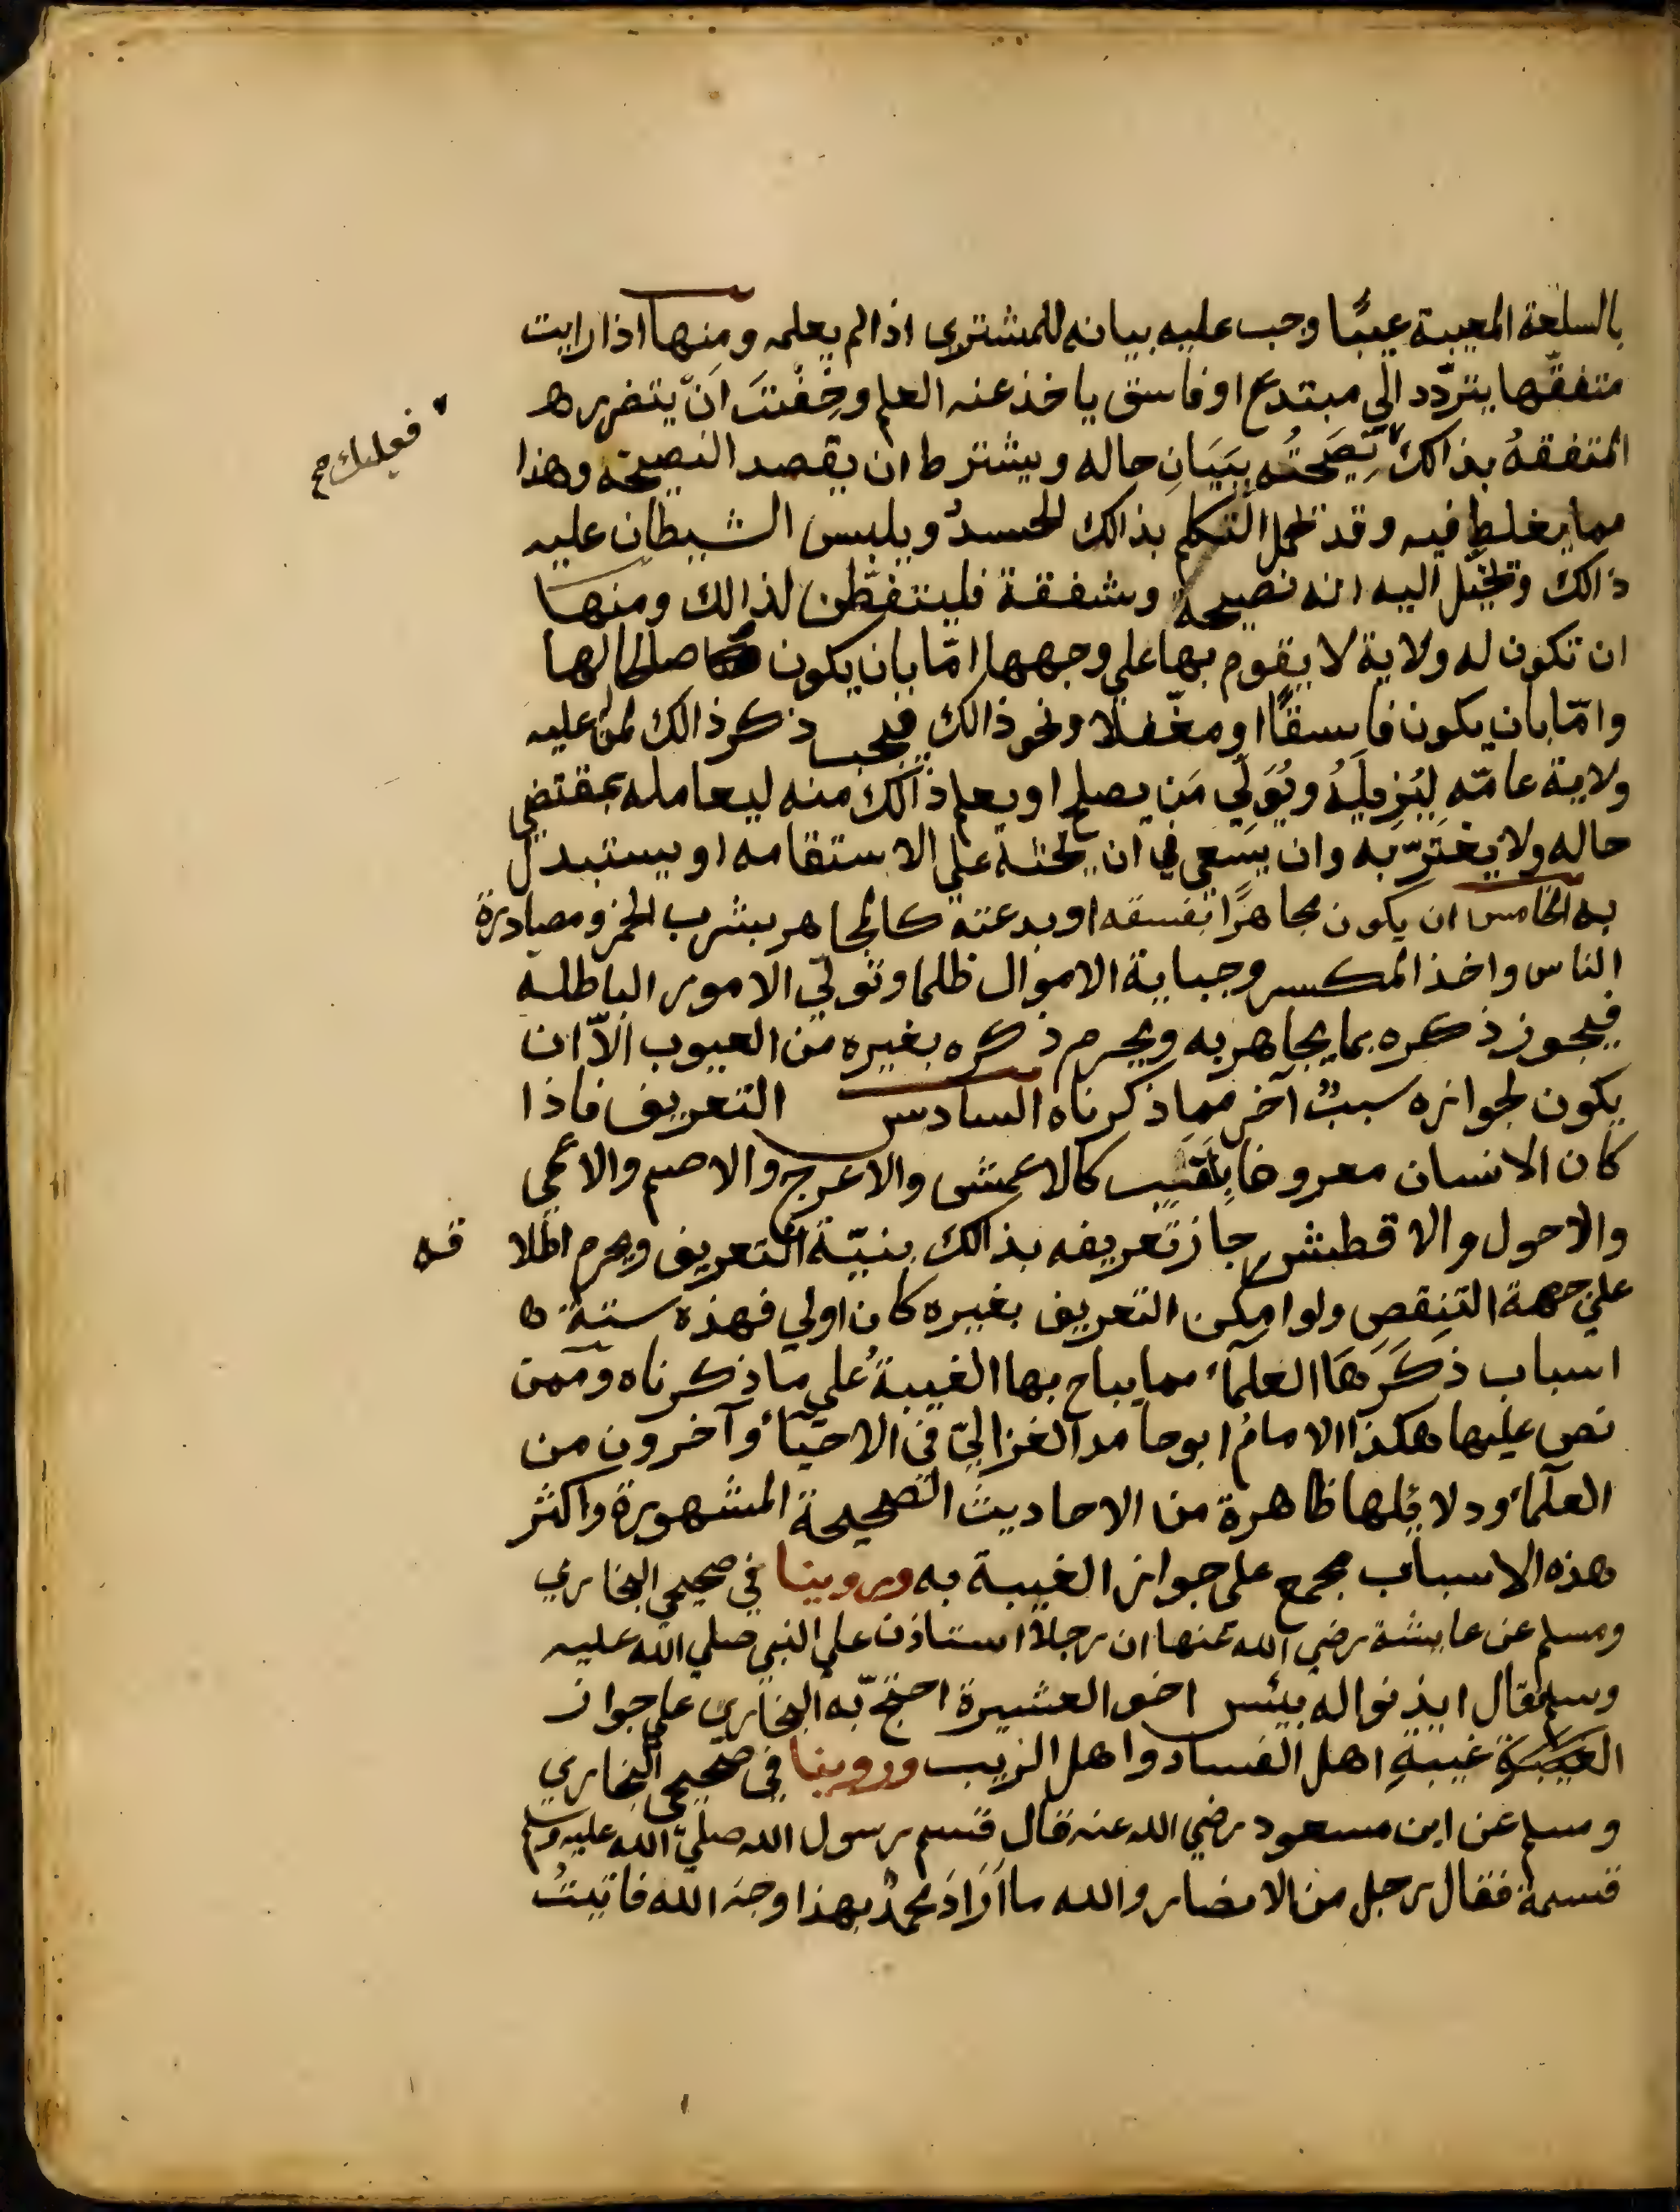 بالسلعة المعيبة عيبًا وجب عليه بيانه للمشتري اذا لم يعلمه ومنها اذا رايت
متفقّها يتردّد الي مبتدع او فاسق ياخذ عنه العلم وخِفْتَ اَنْ يتضرر
المتفقهُ بذالك نصِيحَتُه بِبَيَانِ حاله ويشترط ان يقصد النصيحة وهذا
فعليك صح
مما يغلط فيه وقد يحمل المتكلم بذالك الحسدُ ويلبس الشيطان عليه
ذالك ويخيّل اليه انه نصيحة وشفقة فليتفطّن لذالك ومنها
ان تكون له ولاية لا يقوم بها علي وجهها امّا بان يكون صالحا لها
وامّا بان يكون فاسقًا او مغفّلا ونحو ذالك فيجب ذكر ذالك لمن عليه
ولاية عامّه لِيُزِيلَهُ ويُوَلّي مَن يصلح او يعلم ذالك منه ليعامله بمقتضي
حاله ولا يغترّ به وان يسعي في ان يحثه علي الاستقامه او يستبدل
به الخامس ان يكون مجاهرًا بفسقه او بدعته كالمجاهر بشرب الخمر ومصادرة
الناس واخذ المكس وجباية الاموال ظلما وتولّي الامور الباطله
فيجوز ذكره بما يجاهر به ويحرم ذكره بغيره من العيوب الّا ان
يكون لجوازه سببٌ آخر مما ذكرناه السادس التعريف فاذا
كان الانسان معروفا بِلَقَبٍ كالاعمش والاعرج والاصم والاعمي
والاحول والاقطش جاز تعريفه بذالك بنيّة التعريف ويحرم اطلا قه
علي جهة التنقص ولو امكن التعريف بغيره كان اولي فهذه ستة
اسباب ذَكَرَهَا العلمآء مما يباح بها الغيبةُ علي ما ذكرناه وممن
نص عليها هكذا الامام ابو حامد الغزاليّ في الاحيآء وآخرون من
العلمآء ودلائلها ظاهرة من الاحاديث الصحيحة المشهورة واكثر
هذه الاسباب مجمع علي جواز الغيبة به وروينا في صحيحي البخاري
ومسلم عن عايشة رضي الله عنها ان رجلا استاذن علي النبي صلي الله عليه
وسلم فقال ايذنوا له بيئس اخو العشيرة احتجّ به البخاري علي جواز
الغيبة غيبةِ اهل الفساد واهل الريب وروينا في صحيحي البخاري
ومسلم عن ابن مسعود رضي الله عنه قال قسم رسول الله صلّي الله عليه وسلم
قسمة فقال رجل من الانصار والله ما اَرَادَ محمدٌ بهذا وجه الله فاتيتُ